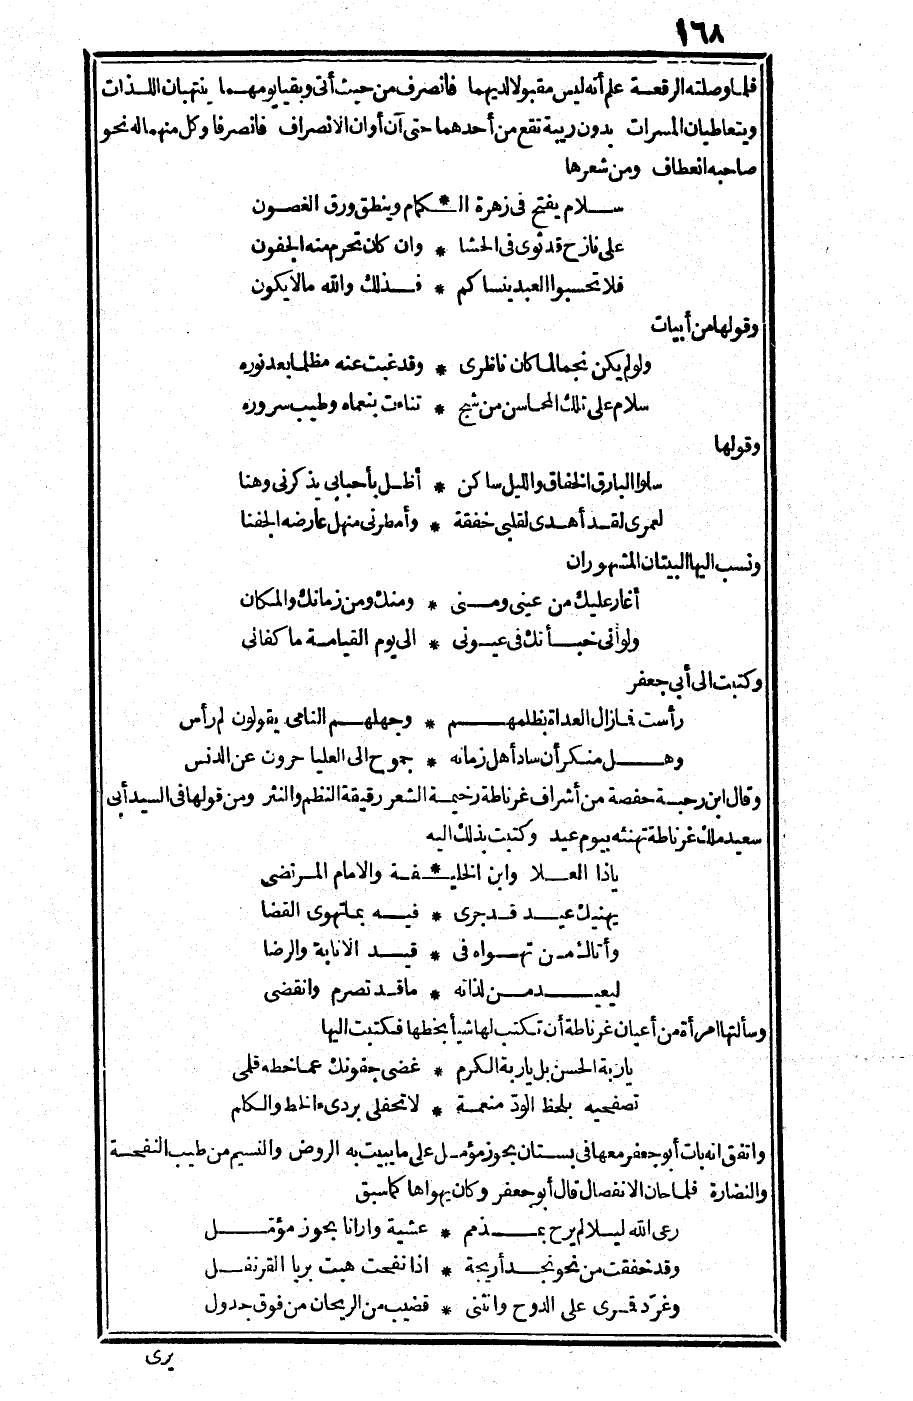 ١٦٨
فلما وصلته الرقعة علم أنه ليس مقبولا لديهما فانصرف من حيث أتى وبقيا يومهما ينتهبان اللذات
ويتعاطيان المسرات بدون ريبة تقع من أحدهما حتى آن أوان الانصراف فانصرفا وكل منهما له نحو
صاحبه انعطاف ومن شعرها
سلام يفتح فى زهرة الـ * ـكمام وينطق ورق الغصون
على نازح قد ثوى فى الحشا * وان كان تحرم منه الجفون
فلا تحسبوا العبد ينساكم * فذلك والله مالا يكون
وقولها من أبيات
ولو لم يكن نجما لما كان ناظرى * وقد غبت عنه مظلما بعد نوره
سلام على تلك المحاسن من شج * تناءت بنعماه وطيب سروره
وقولها
سلوا البارق الخفاق والليل ساكن * أظل بأحبابى يذكرنى وهنا
لعمرى لقد أهدى لقلبى خفقة * وأمطرنى منهل عارضه الجفنا
ونسب اليها البيتان المشهوران
أغار عليك من عينى ومنى * ومنك ومن زمانك والمكان
ولو أنى خبأتك فى عيونى * الى يوم القيامة ما كفانى
وكتبت الى أبى جعفر
رأست فمازال العداة بظلمهم * وجهلهم النامى يقولون لم رأس
وهل منكر أن ساد أهل زمانه * جموح الى العليا حرون عن الدنس
وقال ابن رحبة حفصة من أشراف غرناطة رخيمة الشعر رقيقة النظم والنثر ومن قولها فى السيد أبى
سعيد ملك غرناطة تهنئه بيوم عيد وكتبت بذلك اليه
ياذا العلا وابن الخليـ * ـفة والامام المرتضى
يهنيك عيد قد جرى * فيه بما تهوى القضا
وأتاك من تهواه فى * قيد الانابة والرضا
ليعيد من لذاته * ما قد تصرم وانقضى
وسألتها امرأة من أعيان غرناطة أن تكتب لها شيأ بخطها فكتبت اليها
ياربة الحسن بل ياربة الكرم * غضى جفونك عما خطه قلمى
تصفحيه بلحظ الود منعمة * لا تحفلى بردىء الخط والكلم
واتفق انه بات أبو جعفر معها فى بستان بحوز مؤمل على ما يبيت به الروض والنسيم من طيب النفحة
والنضارة فلما حان الانفصال قال أبو جعفر وكان يهواها كما سبق
رعى الله ليلا لم يرح بمذمم * عشية وارانا بحوز مؤمل
وقد خفقت من نحو نجد أريجة * اذا نفحت هبت بريا القرنفل
وغرّد قمرى على الدوح وانثنى * قضيب من الريحان من فوق جدول
يرى